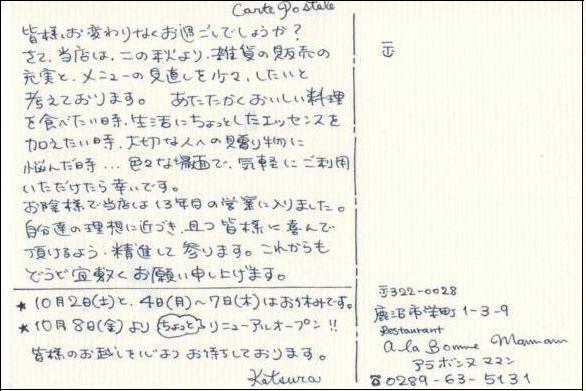 Carte Postale
皆様、お変わりなくお過ごしでしょうか?
さて、当店は、この秋より、雑貨の販売の
充実と、メニューの見直しを少々、したいと
考えております。 あたたかくおいしい料理
を食べたい時、生活にちょっとしたエッセンスを
加えたい時、大切な人への贈り物に
悩んだ時…色々な場面で、気軽にご利用
いただけたら幸いです。
お陰様で当店は13年目の営業に入りました。
自分達の理想に近づき、且つ皆様に喜んで
頂けるよう、精進して参ります。これからも
どうぞ宜敷くお願い申し上げます。
★10月2日(土)と、4日(月)〜7日(木)はお休みです。
★10月8日(金)より ちょっとリニューアルオープン!!
皆様のお越しを心よりお待ちしております。
Katsura
〒
〒322-0028
鹿沼市栄町1-3-9
Restaurant
a la Bonne Maman
アラボンヌママン
☎0289-63-5131